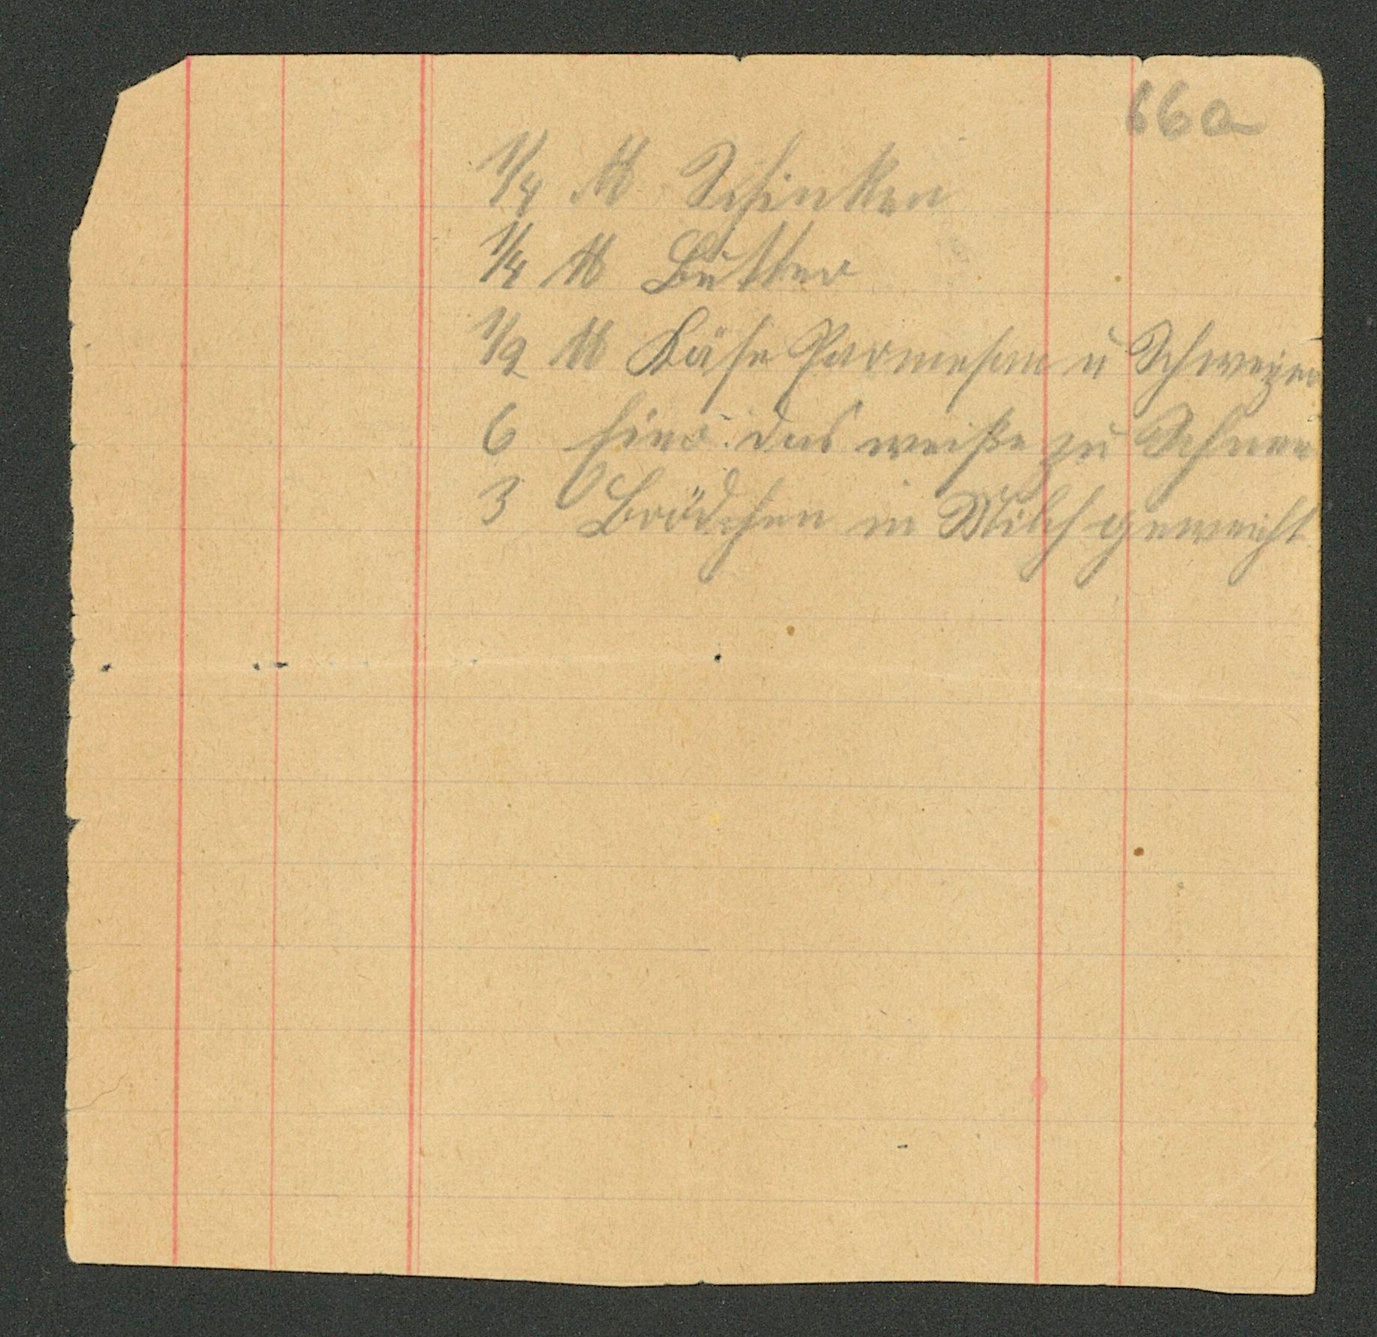 66a
1/4 ℔ Schinken
1/4 ℔ Butter
1/2 ℔ Käse Parmesan u Schweizer
6 Eier. das weiße zu Schnee
3 Brödchen in Milch geweicht